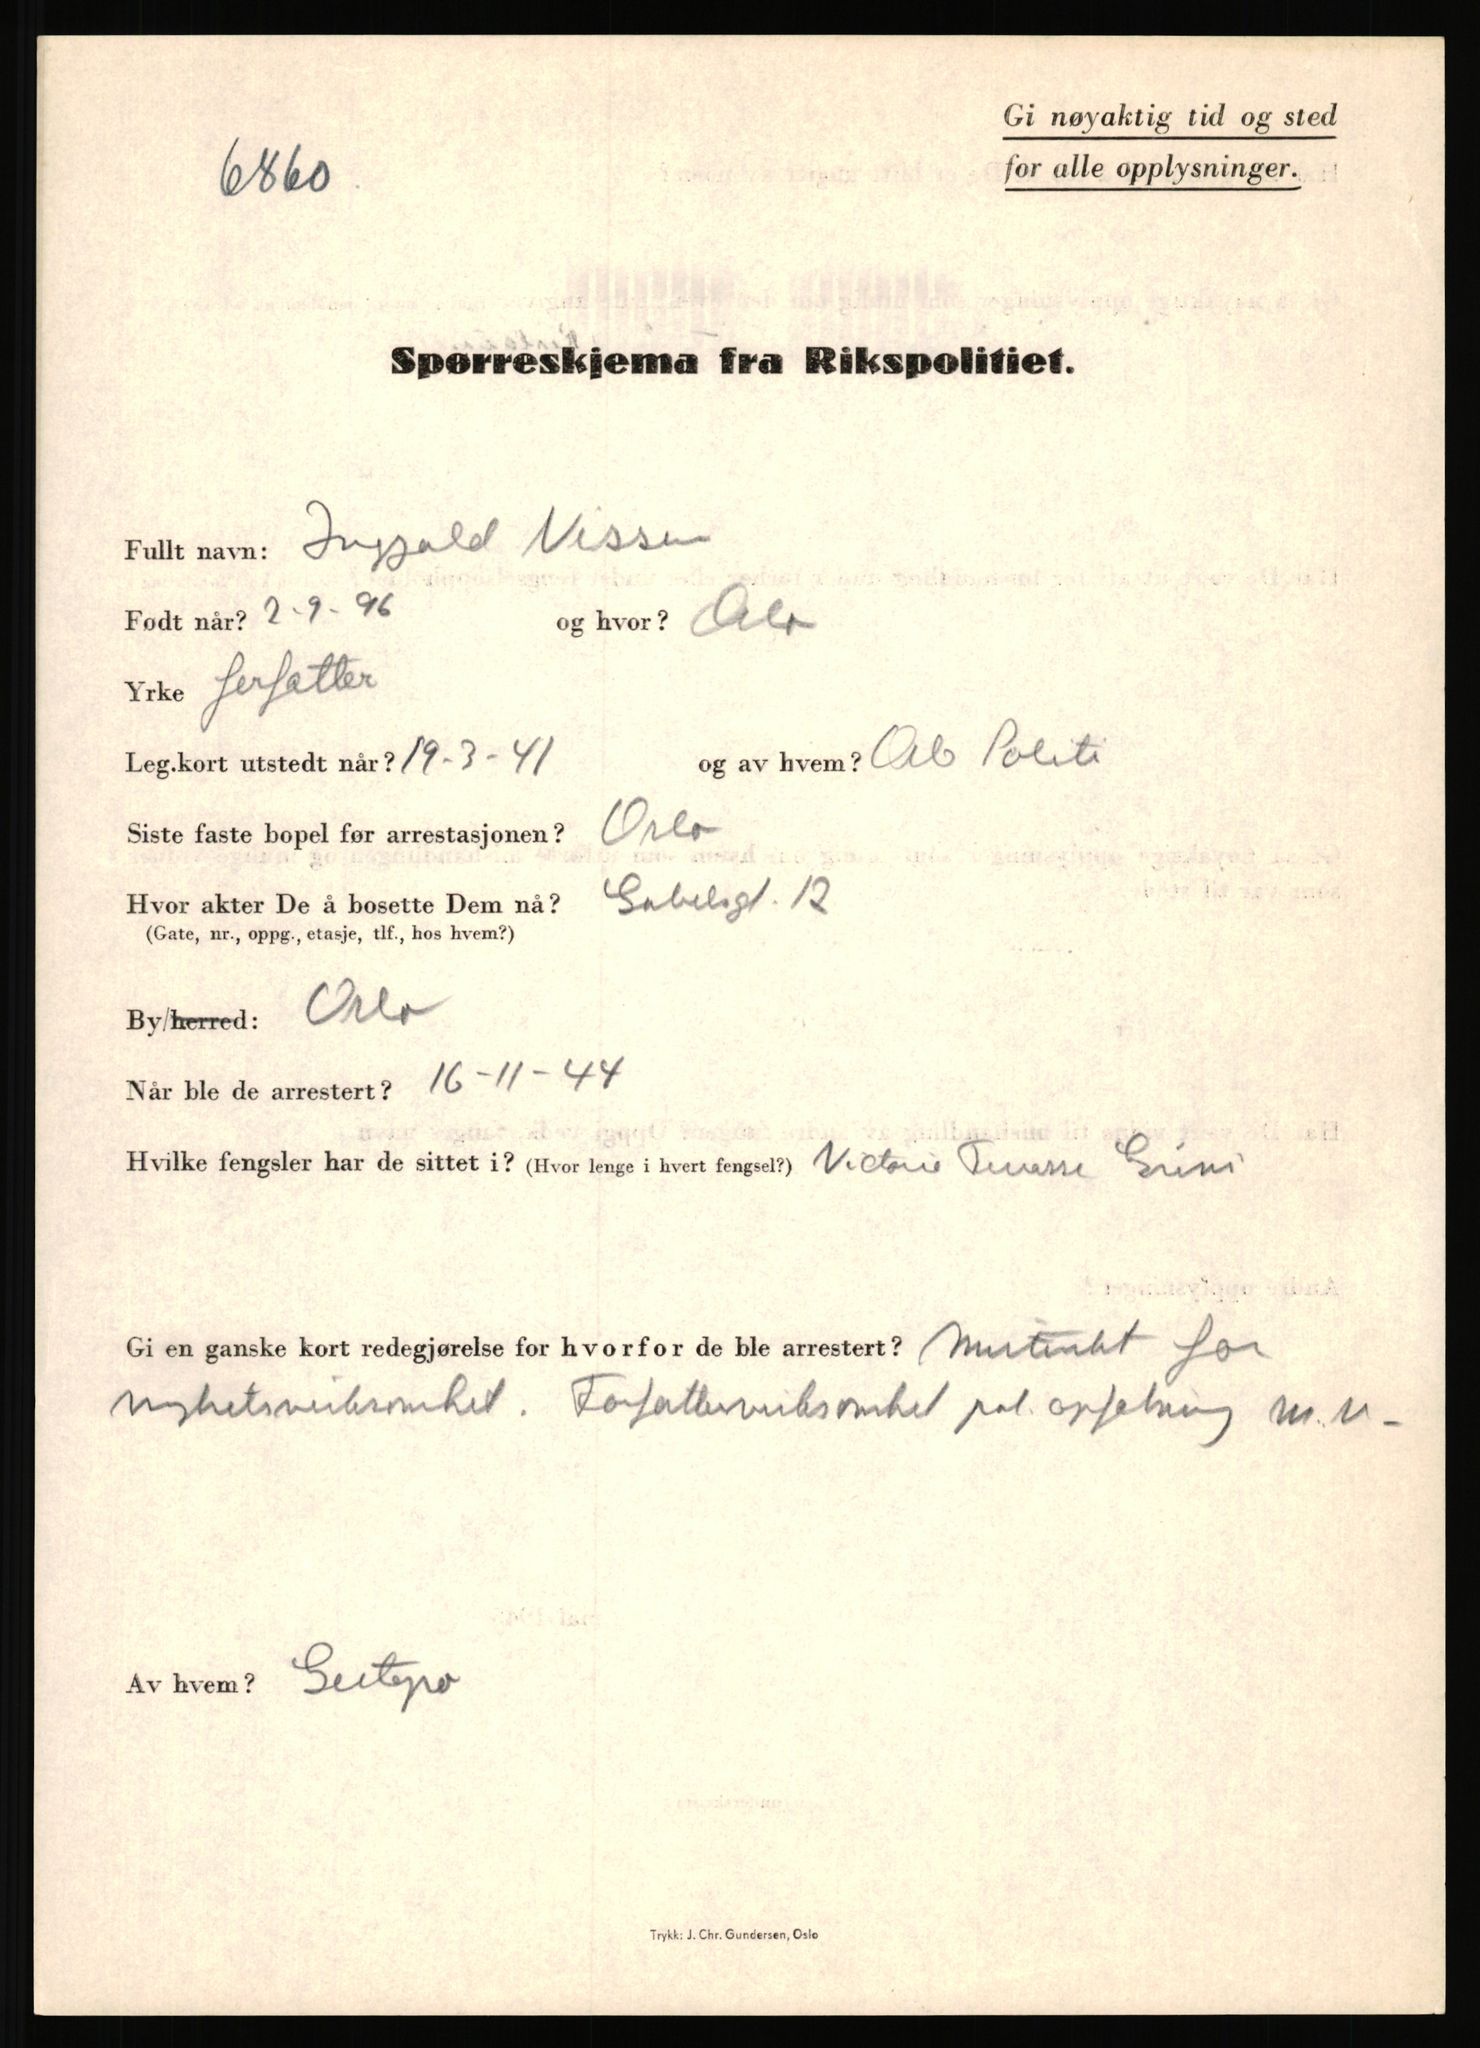 Gi nøyaktig tid og sted
for alle opplysninger.
6860
Spørreskjema fra Rikspolitiet.
Fullt navn: Ingjald Nissen
Født når? 2-9-96 og hvor? Oslo
Yrke forfatter
Leg.kort utstedt når? 19-3-41 og av hvem? Oslo Politi
Siste faste bopel før arrestasjonen? Oslo
Hvor akter De å bosette Dem nå? Gabelsgt. 12
(Gate, nr., oppg., etasje, tlf., hos hvem?)
By/herred: Oslo
Når ble de arrestert? 16-11-44
Hvilke fengsler har de sittet i? (Hvor lenge i hvert fengsel?) Victoria Terrasse Grini
Gi en ganske kort redegjørelse for hvorfor de ble arrestert? Mistenkt for
nyhetsvirksomhet. Forfattervirksomhet pol. opfatning m.v-
Av hvem? Gestapo
Trykk: J. Chr. Gundersen, Oslo